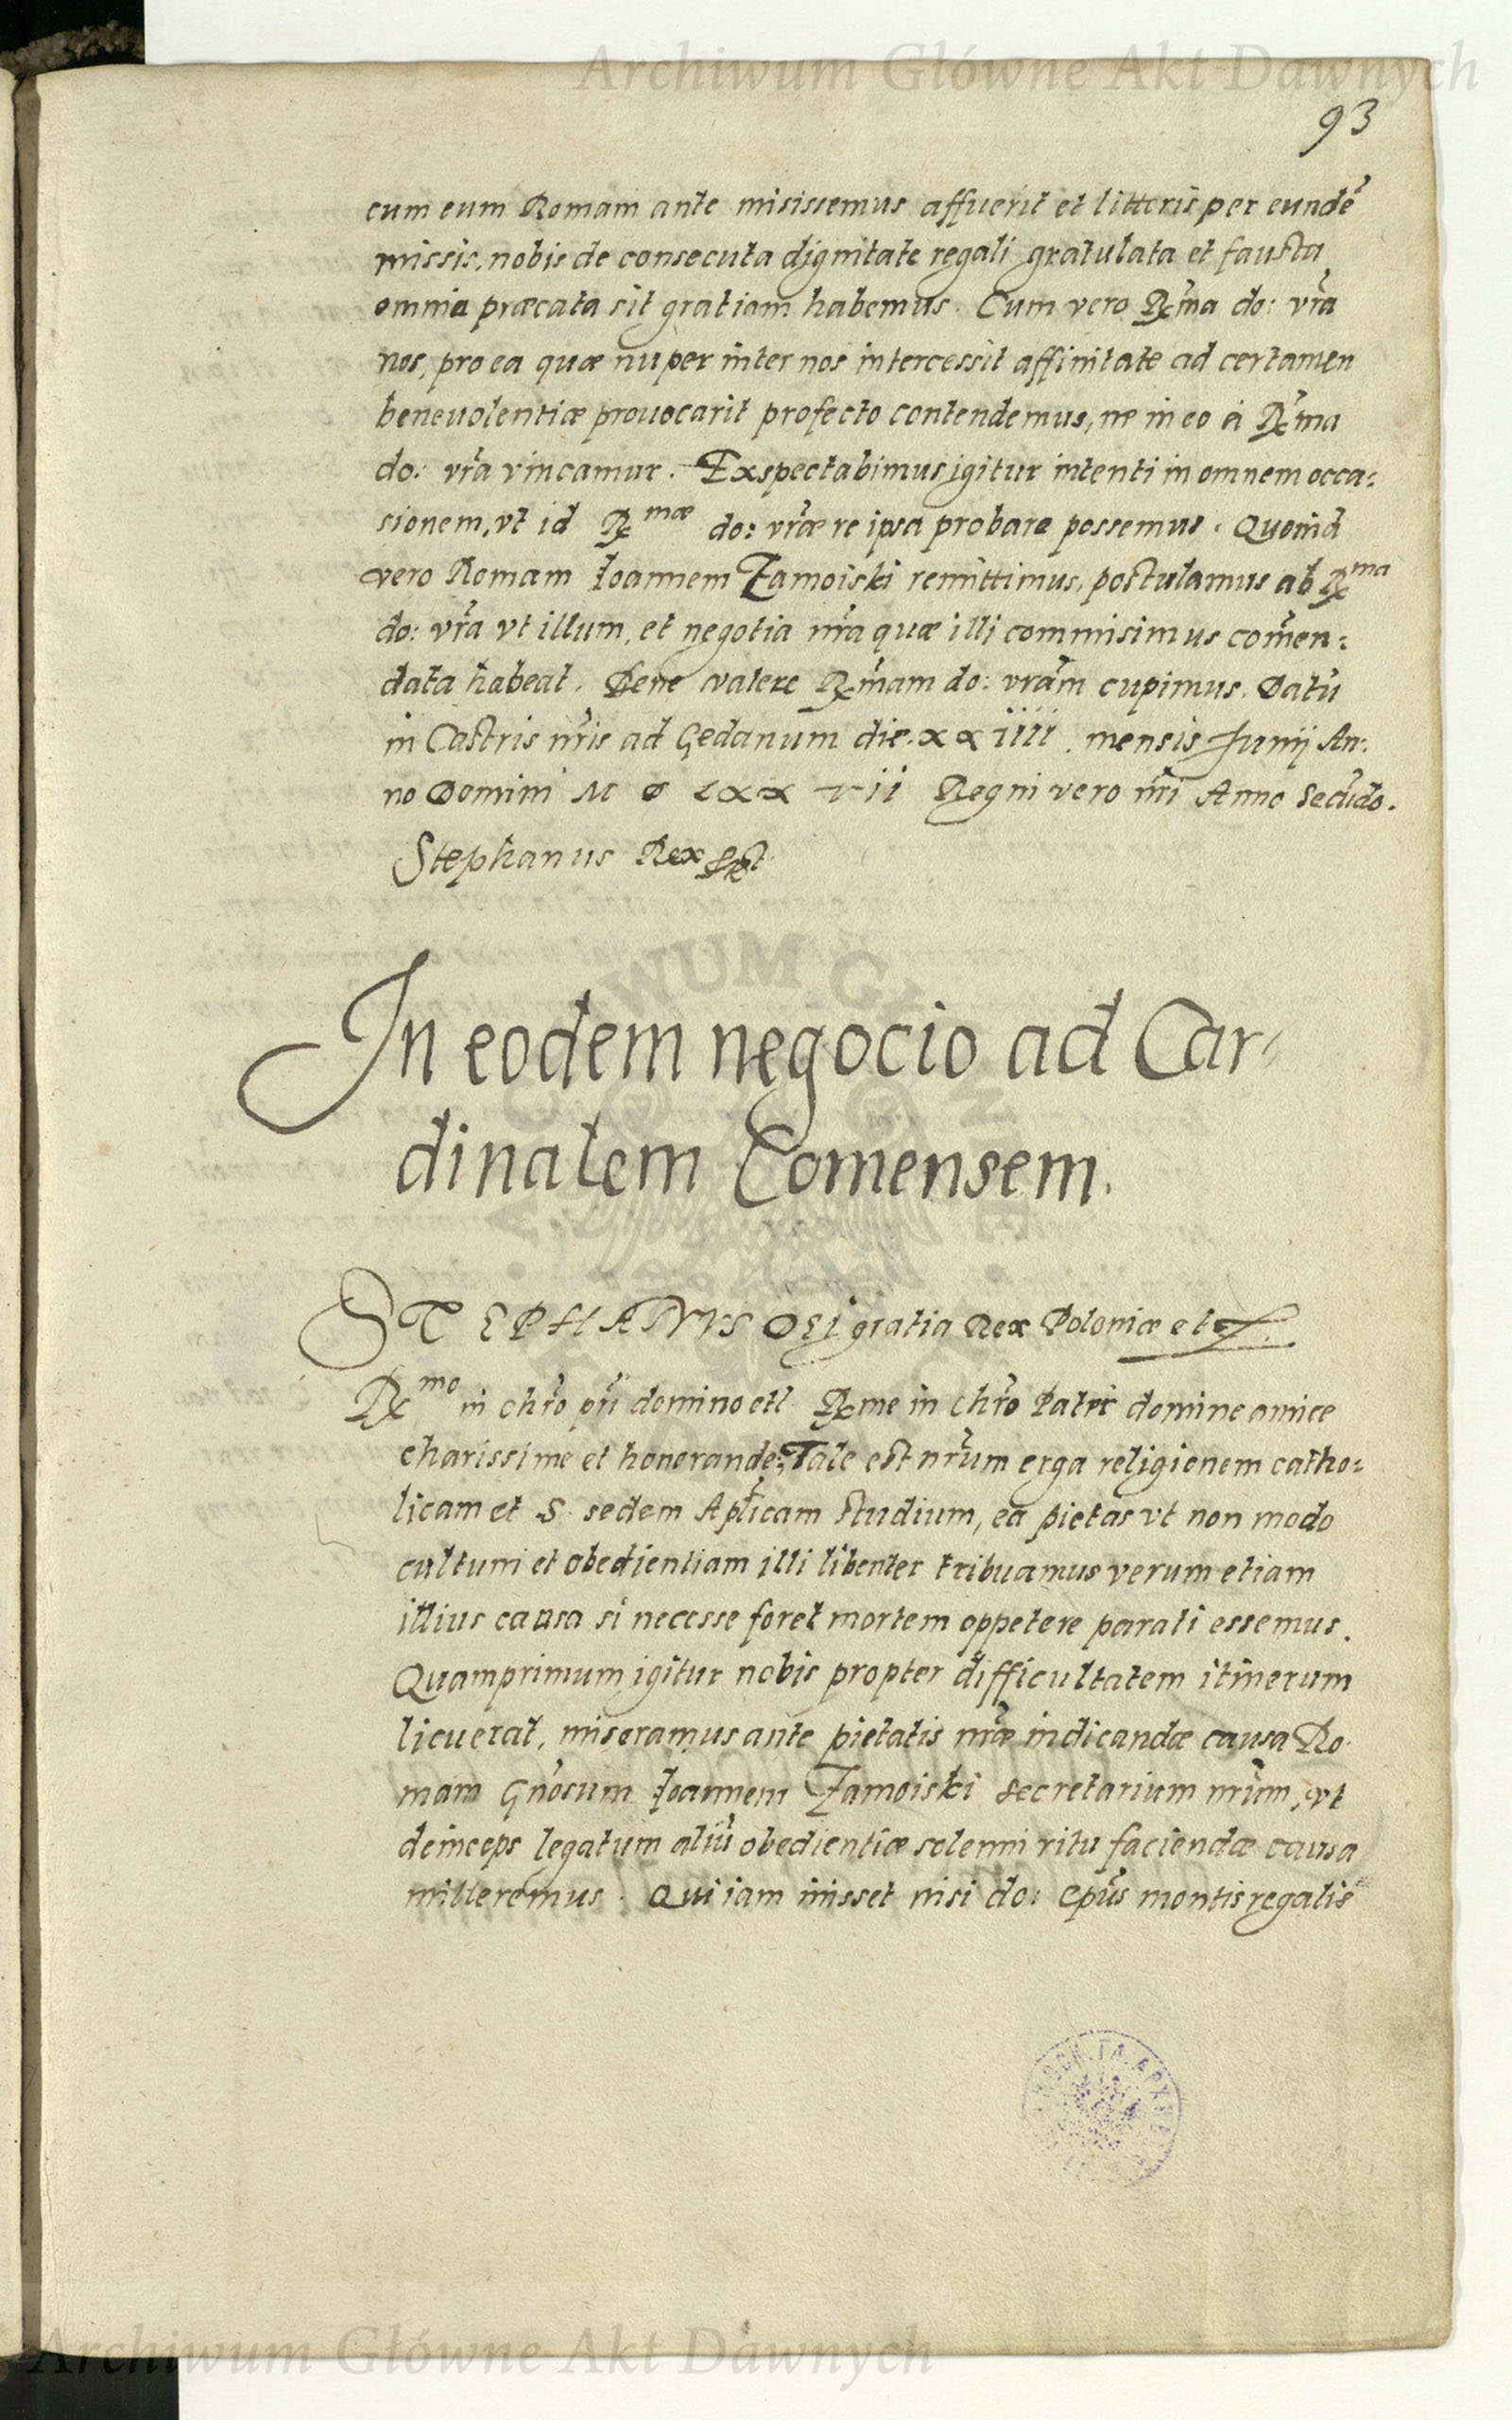 Archiwum Główne Akt Dawnych
93
cum eum Romam ante misissemus affuerit et litteris per eundē
missis, nobis de consecuta dignitate regali gratulata et fausta
omnia præcata sit gratiam habemus. Cum vero Rm̃a do: vr̃a
nos, pro ea quæ nuper inter nos intercessit affinitate ad certamen
beneuolentiæ prouocarit profecto contendemus, ne in eo á Rm̃a
do: vr̃a vincamur. Exspectabimus igitur intenti in omnem occa:
sionem, vt id R mæ do: vr̃æ re ipsa probare possemus. Quoniã
vero Romam Joannem Zamoiski remittimus, postulamus ab R ma
do: vr̃a vt illum, et negotia nr̃a quæ illi commisimus com̃en:
data habeat. Bene valere Rm̃am do: vrãm cupimus. Datũ
in Castris nr̃is ad Gedanum die. XXIIII. mensis Junij An:
no Domini M D LXX VII Regni vero nr̃i Anno Secũdo.
Stephanus Rex sst
In eodem negocio ad Car-
dinalem Comensem.
STEPHANVS DEI gratia Rex Poloniæ etc.
R mo in chr̃o pr̃i domino etc Rm̃e in chr̃o Pater domine amice
charissime et honorande: Tale est nr̃um erga religionem catho:
licam et S. sedem Apl̃icam studium, ea pietas vt non modo
cultum et obedientiam illi libenter tribuamus verum etiam
illius causa si necesse foret mortem oppetere parati essemus.
Quamprimum igitur nobis propter difficultatem itinerum
licuerat, miseramus ante pietatis nr̃æ indicandæ causa Ro
mam Gñosum Joannem Zamoiski secretarium nr̃um, vt
deinceps legatum aliũ obedientiæ solenni ritu faciendæ causa
mitteremus. Qui iam iuisset nisi do: ep̃us montisregalis
Archiwum Główne Akt Dawnych